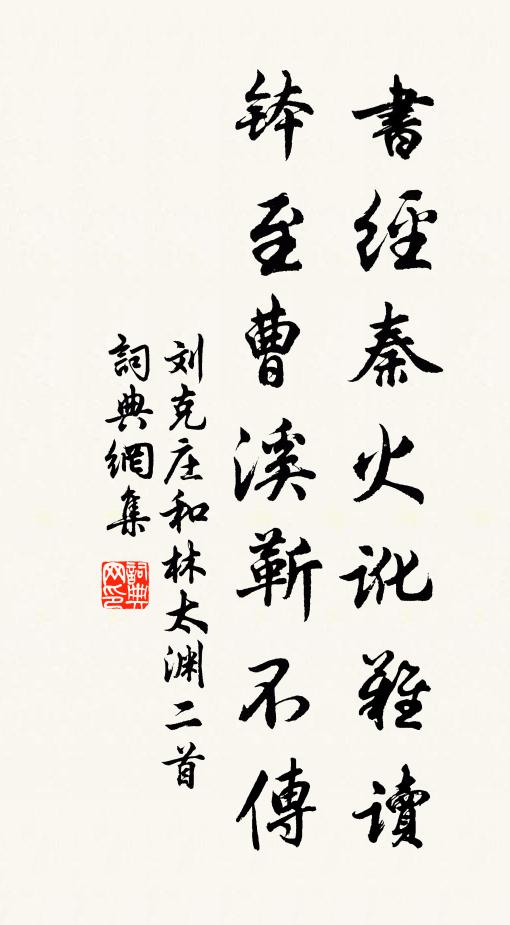 書經秦火訛難讀
鉢至曹溪靳不傳
刘克庄和林太渊二首
詞典網集
詞典
网印